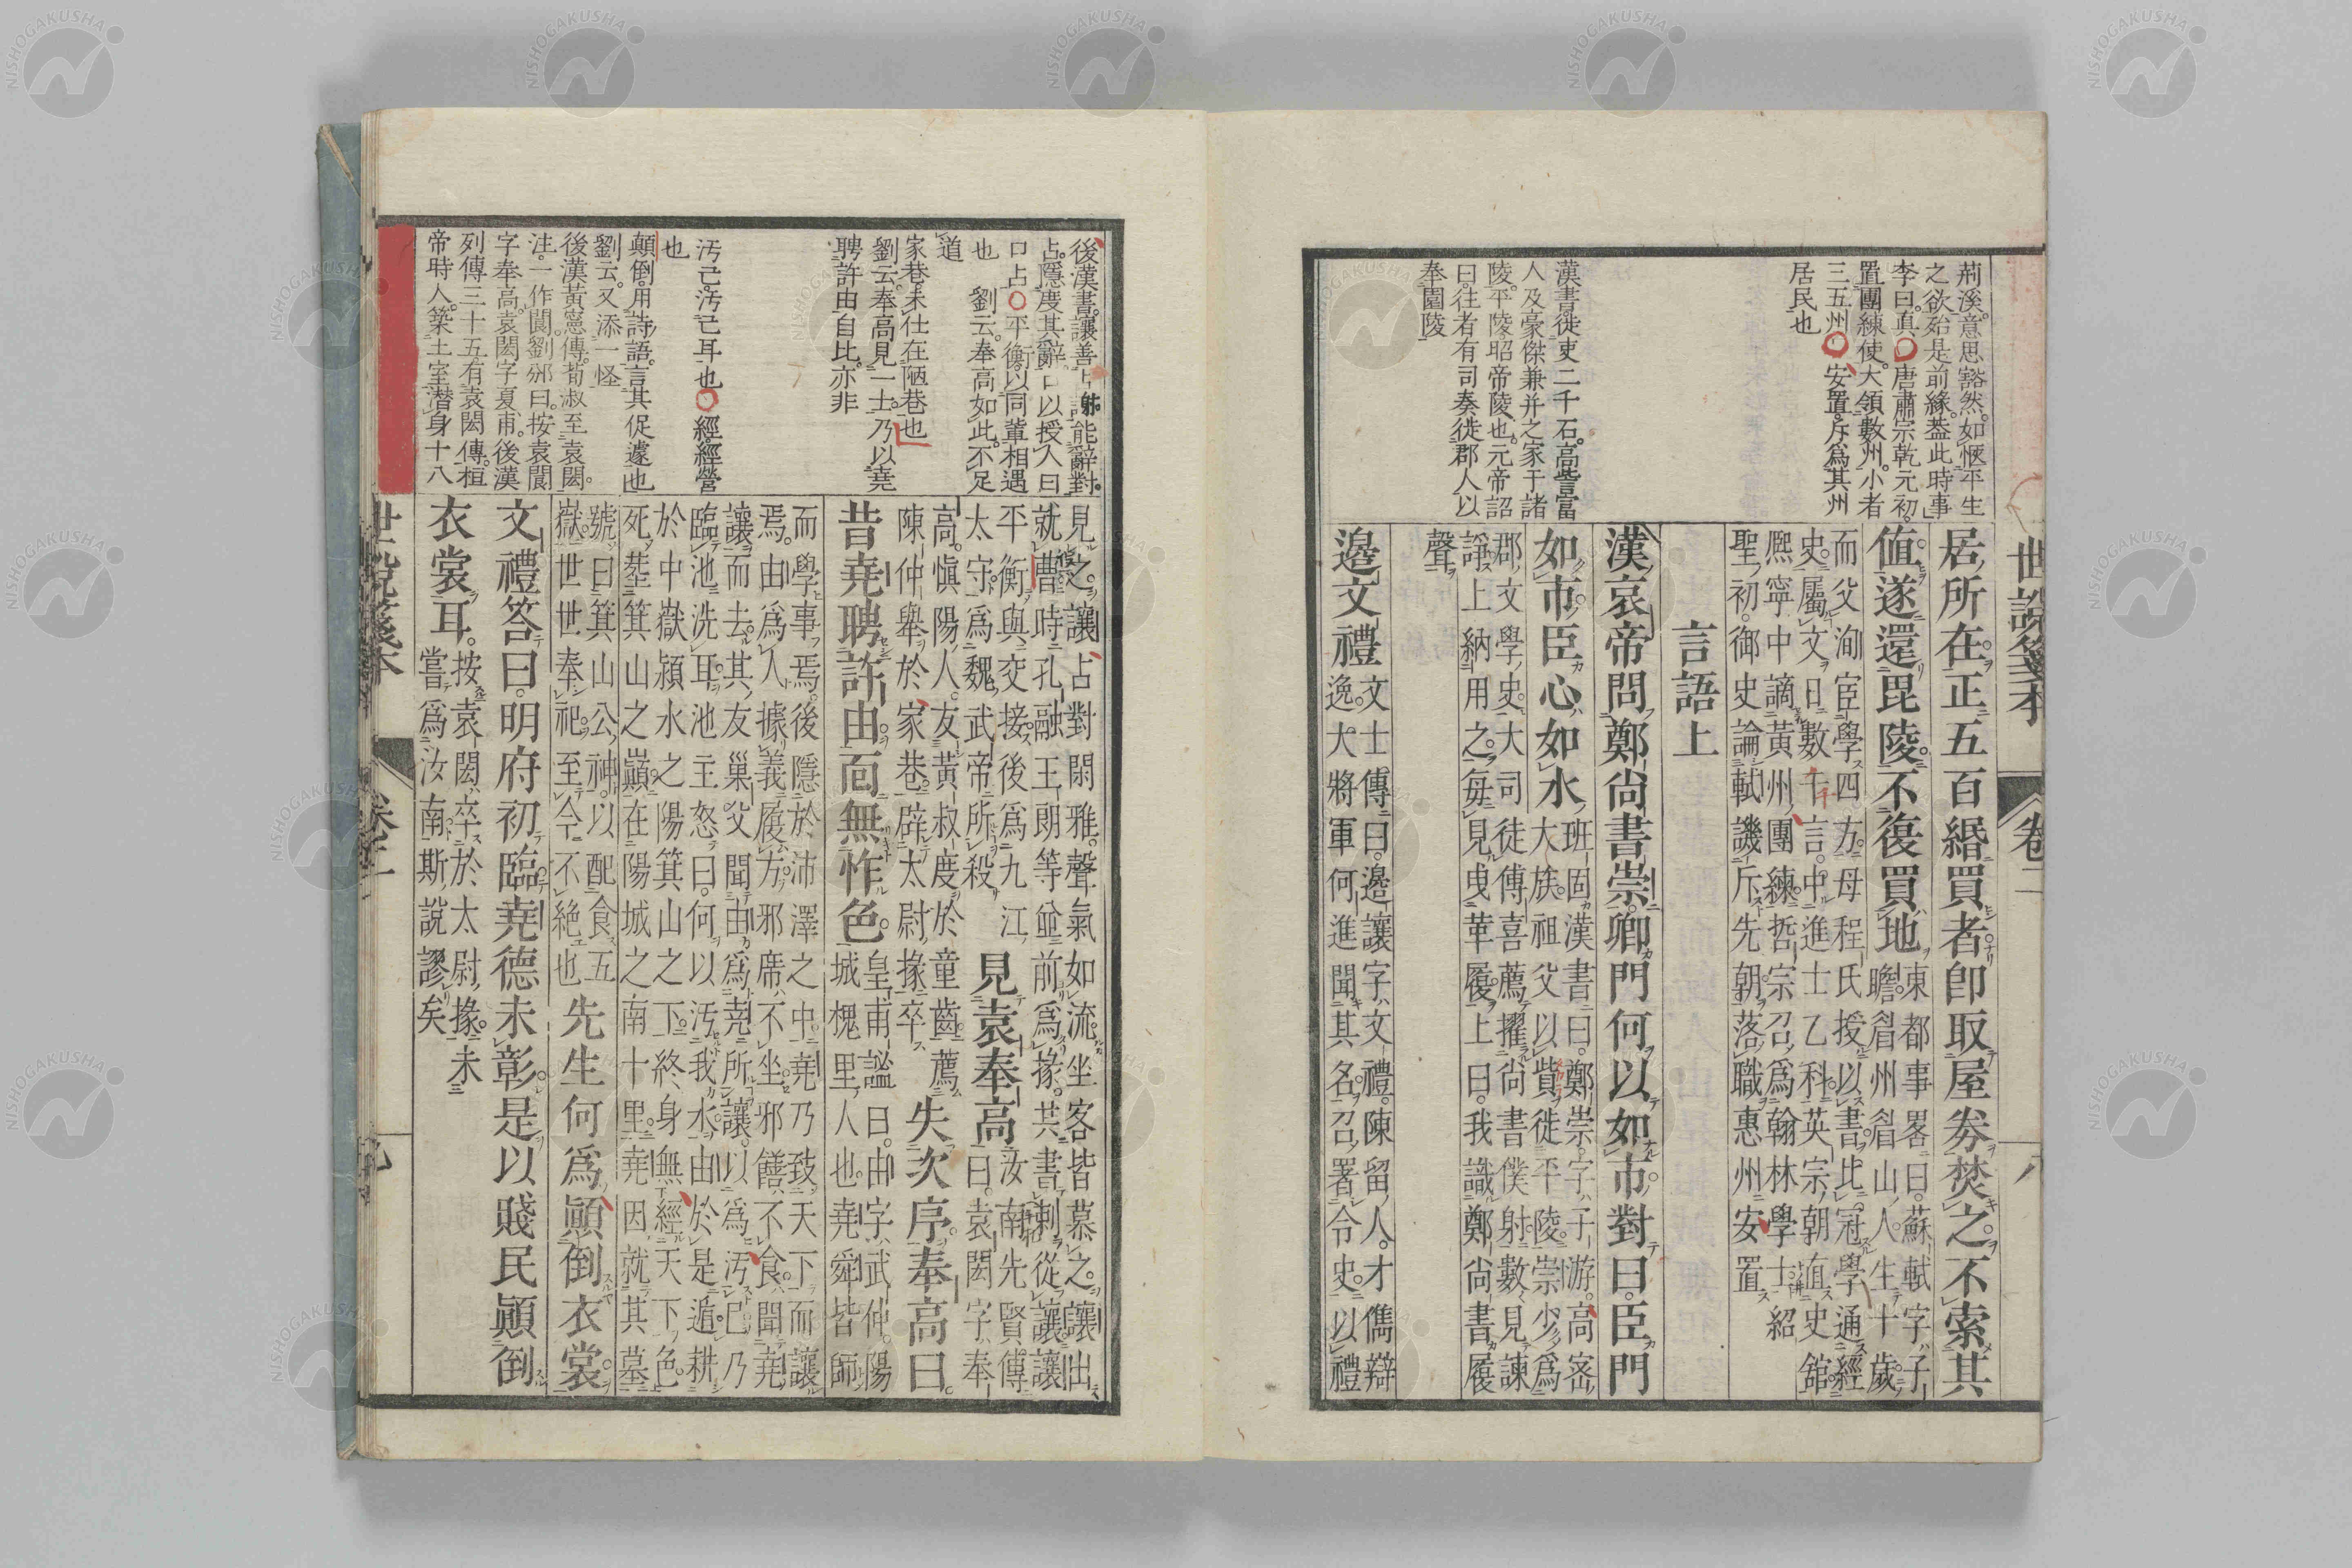 世說箋本 卷二 八
荊溪意思豁然如愜平生
之欲殆是前緣葢此時事
李曰真○唐肅宗乾元初
置團練使大領數州小者
三五州○安置斥爲其州
居民也
漢書徙吏二千石高訾富
人及豪傑兼并之家于諸
陵平陵昭帝陵也元帝詔
曰往者有司奏徙郡人以
奉園陵
居所在正五百緡買者卽取屋券焚之不索其
值遂還毘陵不復買地
東都事畧曰蘇軾字子
瞻眉州眉山人生十歲
而父洵宦學四方母程氏授以書比冠學通經
史屬文日數千言中進士乙科英宗朝直史舘
熙寧中謫黃州團練哲宗召爲翰林學士紹
聖初御史論軾譏斥先朝落職惠州安置
言語上
漢哀帝問鄭尙書崇卿門何以如市對曰臣門
如市臣心如水
班固漢書曰鄭崇字子游高密
大族祖父以貲徙平陵崇少爲
郡文學史大司徒傅喜薦擢尙書僕射數見諫
諍上納用之每見曳革履上曰我識鄭尙書履
聲
邊文禮
文士傳曰邊讓字文禮陳留人才雋辯
逸大將軍何進聞其名召署令史以禮
後漢書讓善占射能辭對
占隱度其辭口以授人曰
口占○平衡以同輩相遇
也 劉云奉高如此不足
道
家巷未仕在陋巷也
劉云奉高見一士乃以堯
聘許由自比亦非
汚己汚己耳也○經經營
也
顛倒用詩語言其促遽也
劉云又添一怪
後漢黃憲傳荀淑至袁閎
注一作閬劉攽曰按袁閬
字奉高袁閎字夏甫後漢
列傳三十五有袁閎傳桓
帝時人築土室潛身十八
見之讓占對閑雅聲氣如流坐客皆慕之讓出
就曹時孔融王朗等竝前爲掾共書刺從讓讓
平衡與交接後爲九江
太守爲魏武帝所殺
見袁奉高
汝南先賢傳
曰袁閎字奉
高愼陽人友黃叔度於童齒薦
陳仲舉於家巷辟太尉掾卒
失次序奉高曰
昔堯聘許由面無怍色
皇甫謐曰由字武仲陽
城槐里人也堯舜皆師
而學事焉後隱於沛澤之中堯乃致天下而讓
焉由爲人據義履方邪席不坐邪饍不食聞堯
讓而去其友巢父聞由爲堯所讓以爲汚己乃
臨池洗耳池主怒曰何以汚我水由於是遁耕
於中嶽潁水之陽箕山之下終身無經天下色
死塟箕山之巓在陽城之南十里堯因就其墓
號曰箕山公神以配食五
嶽世世奉祀至今不絕也
先生何爲顚倒衣裳
文禮答曰明府初臨堯德未彰是以賤民顚倒
衣裳耳
按袁閎卒於太尉掾未
嘗爲汝南斯說謬矣
世說箋本 卷二 九